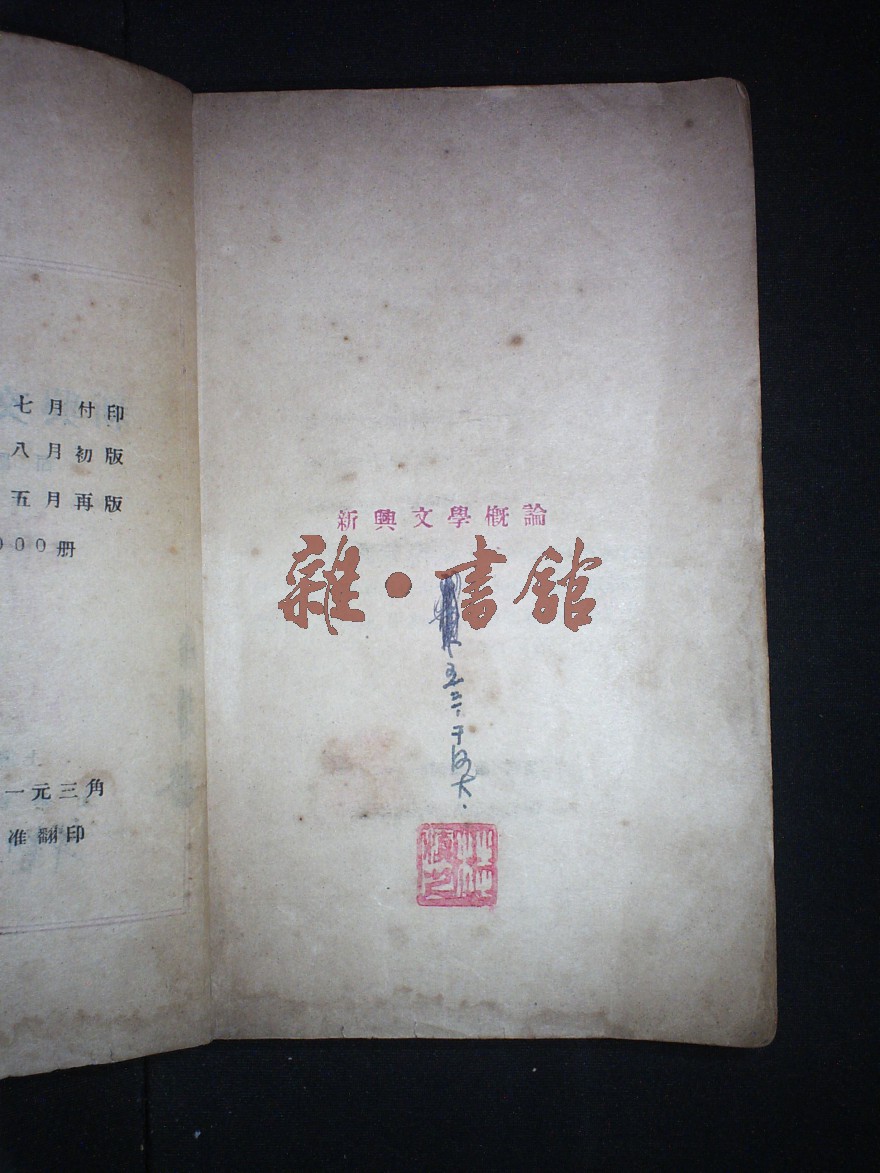 七月付印
八月初版
五月再版
000册
一元三角
准翻印
新興文學概論
雜·書館
五三.于河大.